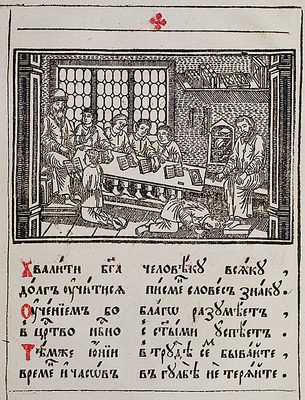 Хвалити бг҃а человѣку всяку ,
долгъ ѹчитися писмѐ словесъ знаку .
Оученїемъ бо благѡ разумѣетъ ,
в црⷭ҇тво нб҃но с ст҃ыми успѣетъ .
Тѣмже юнїи в трудѣ сем̾ бывайте ,
времѐ и часѡвъ в гулѣнѣ не теряйте .